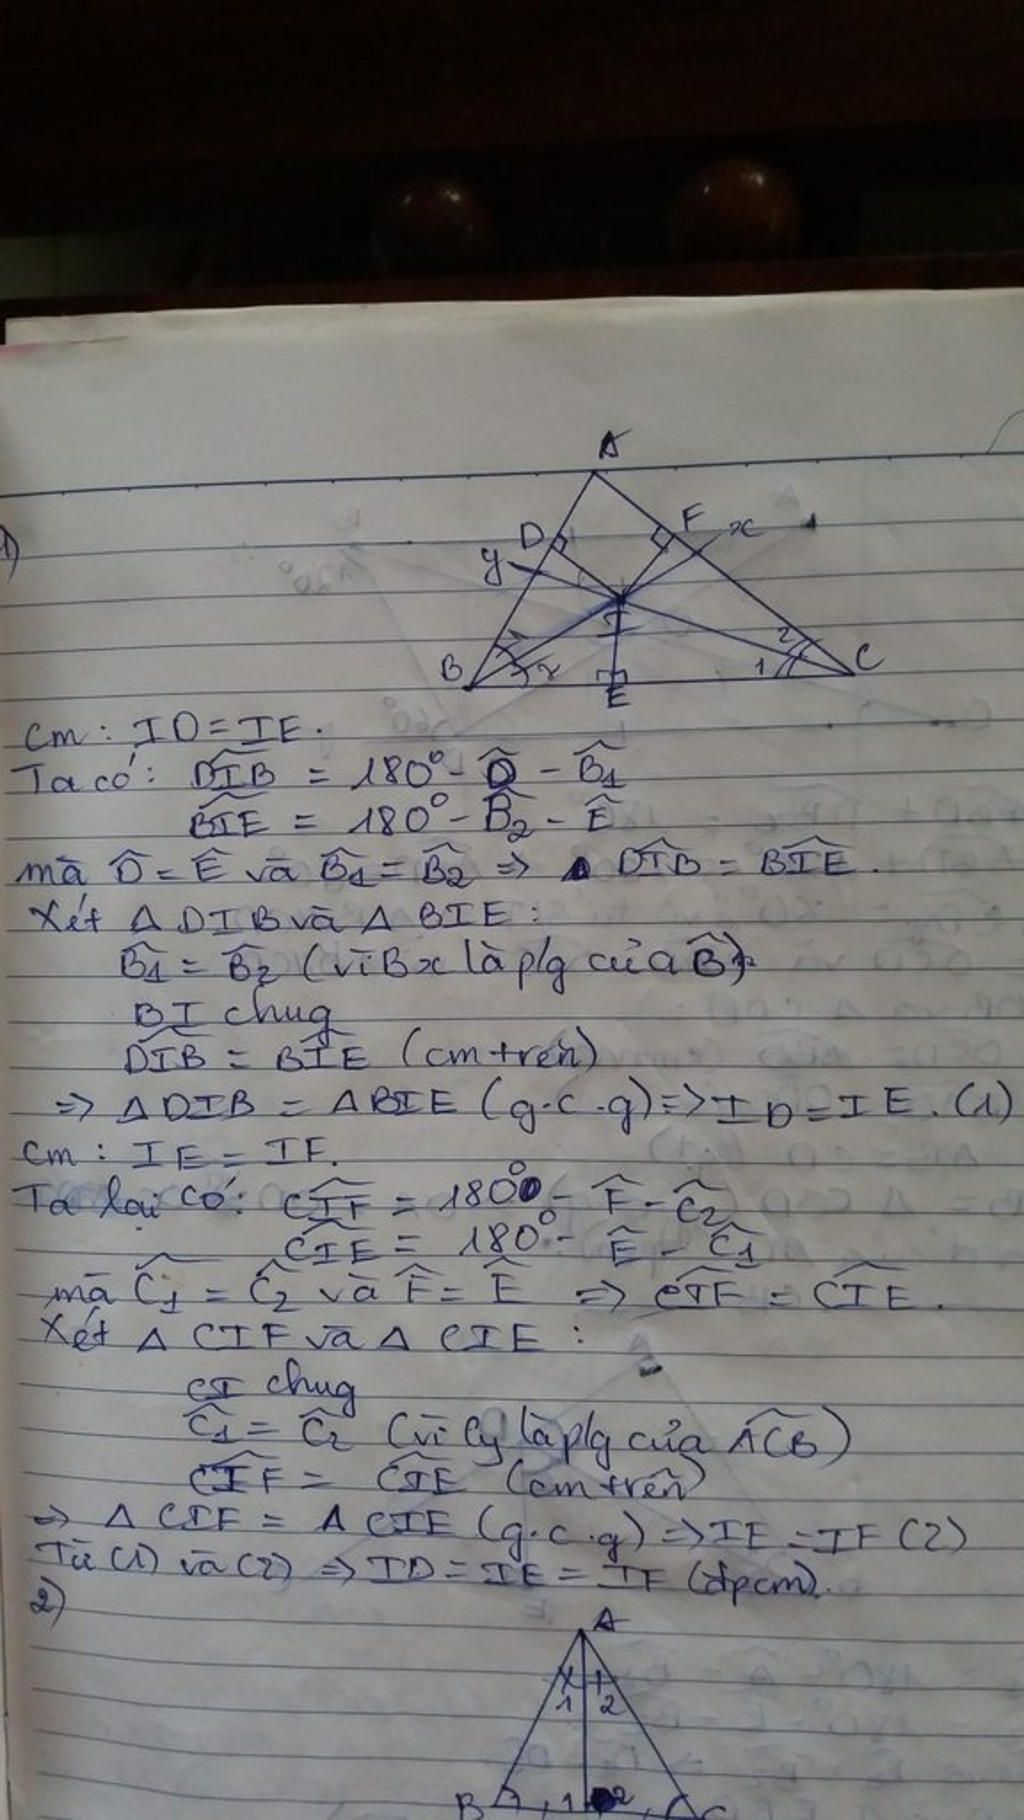 1)
A
D
F
x
y
I
2
B
2
1
C
E
Cm : ID = IE.
Ta có: DIB = 180° - D̂ - B̂1
BIE = 180° - B̂2 - Ê
mà D̂ = Ê và B̂1 = B̂2 => DIB = BIE.
Xét Δ DIB và Δ BIE :
B̂1 = B̂2 (vì Bx là p/g của B̂)
BI chug
DIB = BIE (cm trên)
=> Δ DIB = Δ BIE (g.c.g) => ID = IE. (1)
Cm : IE = IF.
Ta lại có: CIF = 180° - F̂ - Ĉ2
CIE = 180° - Ê - Ĉ1
mà Ĉ1 = Ĉ2 và F̂ = Ê => CIF = CIE.
Xét Δ CIF và Δ CIE :
CI chug
Ĉ1 = Ĉ2 (vì Cy là p/g của ACB)
CIF = CIE (cm trên)
=> Δ CIF = Δ CIE (g.c.g) => IE = IF (2)
Từ (1) và (2) => ID = IE = IF (đpcm).
2)
A
1 2
B 1 2 C